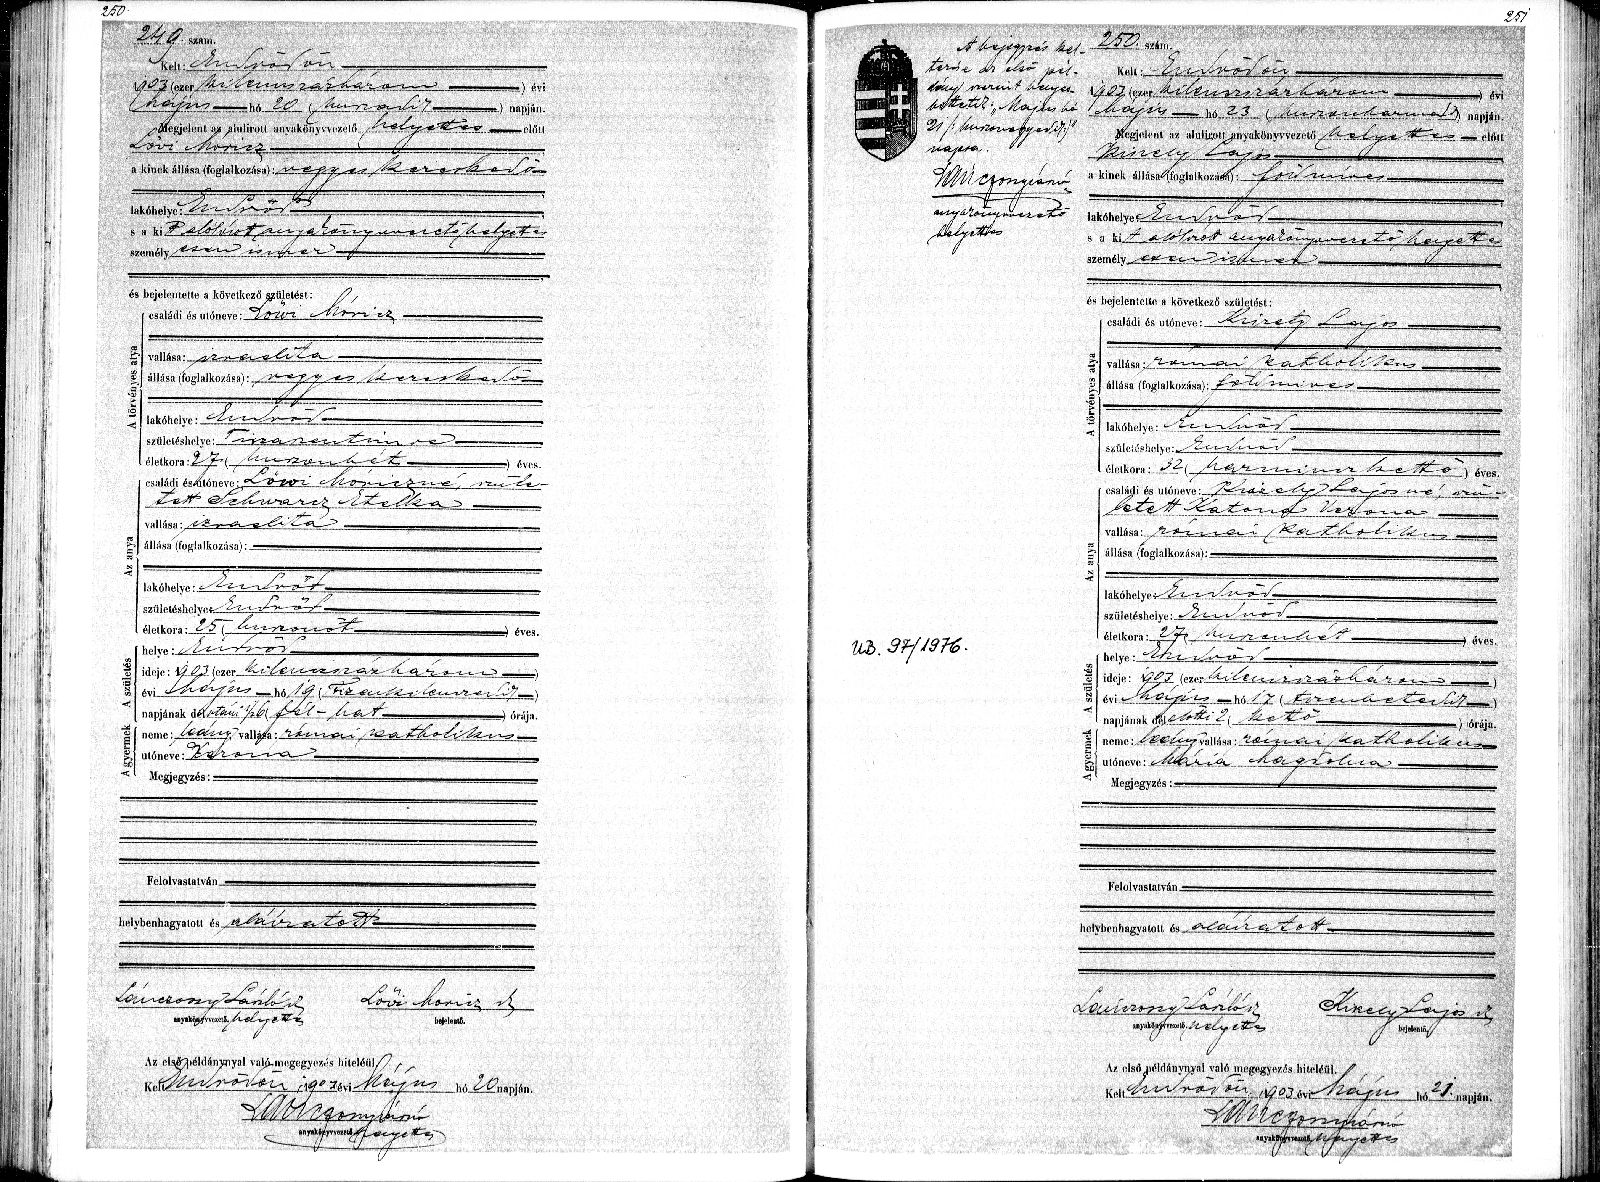 250.
249. szám.
Kelt: Endrődön
1903 (ezer kilencszázhárom) évi
Május hó 20 (huszadik) napján.
Megjelent az alulirott anyakönyvvezető helyettes előtt
Lővi Moricz
a kinek állása (foglalkozása): vegyes kereskedő
lakóhelye: Endrőd
s a kit alólirott anyakönyvvezető helyettes
személyesen ismer
és bejelentette a következő születést:
A törvényes atya
családi és utóneve: Lőwi Móricz
vallása: izraelita
állása (foglalkozása): vegyes kereskedő
lakóhelye: Endrőd
születéshelye:
életkora: 27 (huszonhét) éves.
Az anya
családi és utóneve: Lőwi Móriczné, szüle-
tett Schwarcz Etelka
vallása: izraelita
állása (foglalkozása):
lakóhelye: Endrőd
születéshelye: Endrőd
életkora: 25 (huszonöt) éves.
A születés
helye: Endrőd
ideje: 1903 (ezer kilencszázhárom)
évi Május hó 19 (tizenkilenczedik)
napjának délutáni ½6 (fél-hat) órája.
A gyermek
neme: leány, vallása: római katholikus
utóneve: Verona
Megjegyzés:
Felolvastatván
helybenhagyatott és aláiratott
Lánczony László Lővi Moricz
anyakönyvvezető. helyettes bejelentő.
Az első példánynyal való megegyezés hiteléül.
Kelt Endrődön, 1903 évi Május hó 20 napján.
anyakönyvvezető. helyettes
251
A bejegyzés kel-
tezése az első pél-
dány szerint helyes-
bittetik: „Május hó
21 /: huszonegyedik"
napra.
anyakönyvvezető
helyettes
UB. 97/1976.
250. szám.
Kelt: Endrődön
1903 (ezer kilencszázhárom) évi
Május hó 23 (huszonharmadik) napján.
Megjelent az alulirott anyakönyvvezető helyettes előtt
Kiszely Lajos
a kinek állása (foglalkozása): földmives
lakóhelye: Endrőd
s a kit alólirott anyakönyvvezető helyettes
személyesen ismer
és bejelentette a következő születést:
A törvényes atya
családi és utóneve: Kiszely Lajos
vallása: római katholikus
állása (foglalkozása): földmives
lakóhelye: Endrőd
születéshelye: Endrőd
életkora: 32 (harminczkettő) éves.
Az anya
családi és utóneve: Kiszely Lajosné, szü-
letett Katona Verona
vallása: római katholikus
állása (foglalkozása):
lakóhelye: Endrőd
születéshelye: Endrőd
életkora: 27 (huszonhét) éves.
A születés
helye: Endrőd
ideje: 1903 (ezer kilencszázhárom)
évi Május hó 17 (tizenhetedik)
napjának délelőtti 2 (kettő) órája.
A gyermek
neme: leány vallása: római katholikus
utóneve: Mária Magdolna
Megjegyzés:
Felolvastatván
helybenhagyatott és aláiratott
Lánczony László Kiszely Lajos
anyakönyvvezető. helyettes bejelentő.
Az első példánynyal való megegyezés hiteléül.
Kelt Endrődön, 1903 évi Május hó 21. napján.
anyakönyvvezető. helyettes